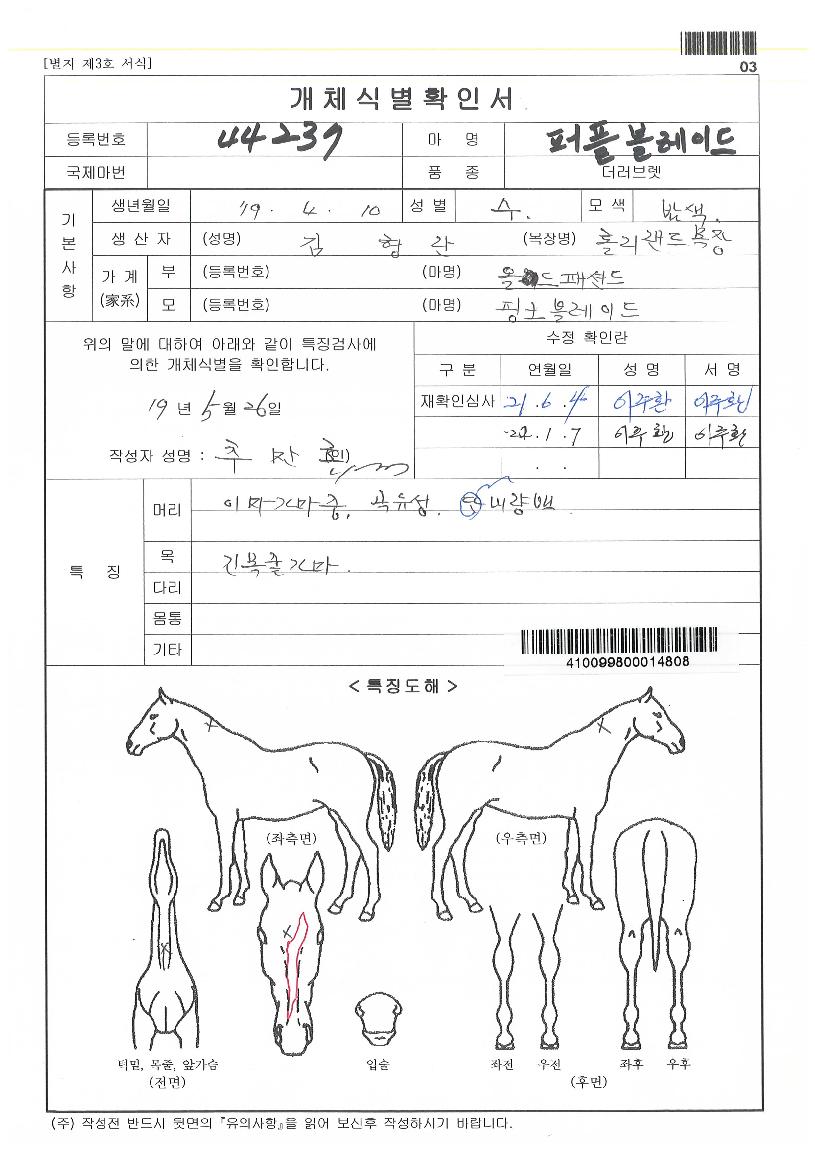 03
[별지 제3호 서식]
개체식별확인서
등록번호 44239 마 명 퍼플블레이드
국제마번 품 종 더러브렛
기본사항
생년월일 '19. 4. 10 성별 수. 모색 밤색.
생산자 (성명) 김형란 (목장명) 홀리랜드목장
가계(家系) 부 (등록번호) (마명) 패션드
모 (등록번호) (마명) 핑크블레이드
위의 말에 대하여 아래와 같이 특징검사에
의한 개체식별을 확인합니다.
19 년 5 월 26 일
작성자 성명 : (인)
수정 확인란
구 분 연월일 성 명 서 명
재확인심사 21. 6. 4 이주환 이주환
22. 1. 7 이주환 이주환
. .
특 징
머리 이마가마중, 곡유성. 비량백
목 긴목줄가마.
다리
몸통
기타
410099800014808
< 특징도해 >
(좌측면) (우측면)
턱밑, 목줄, 앞가슴 입술 좌전 우전 좌후 우후
(전면) (후면)
(주) 작성전 반드시 뒷면의 『유의사항』을 읽어 보신후 작성하시기 바랍니다.